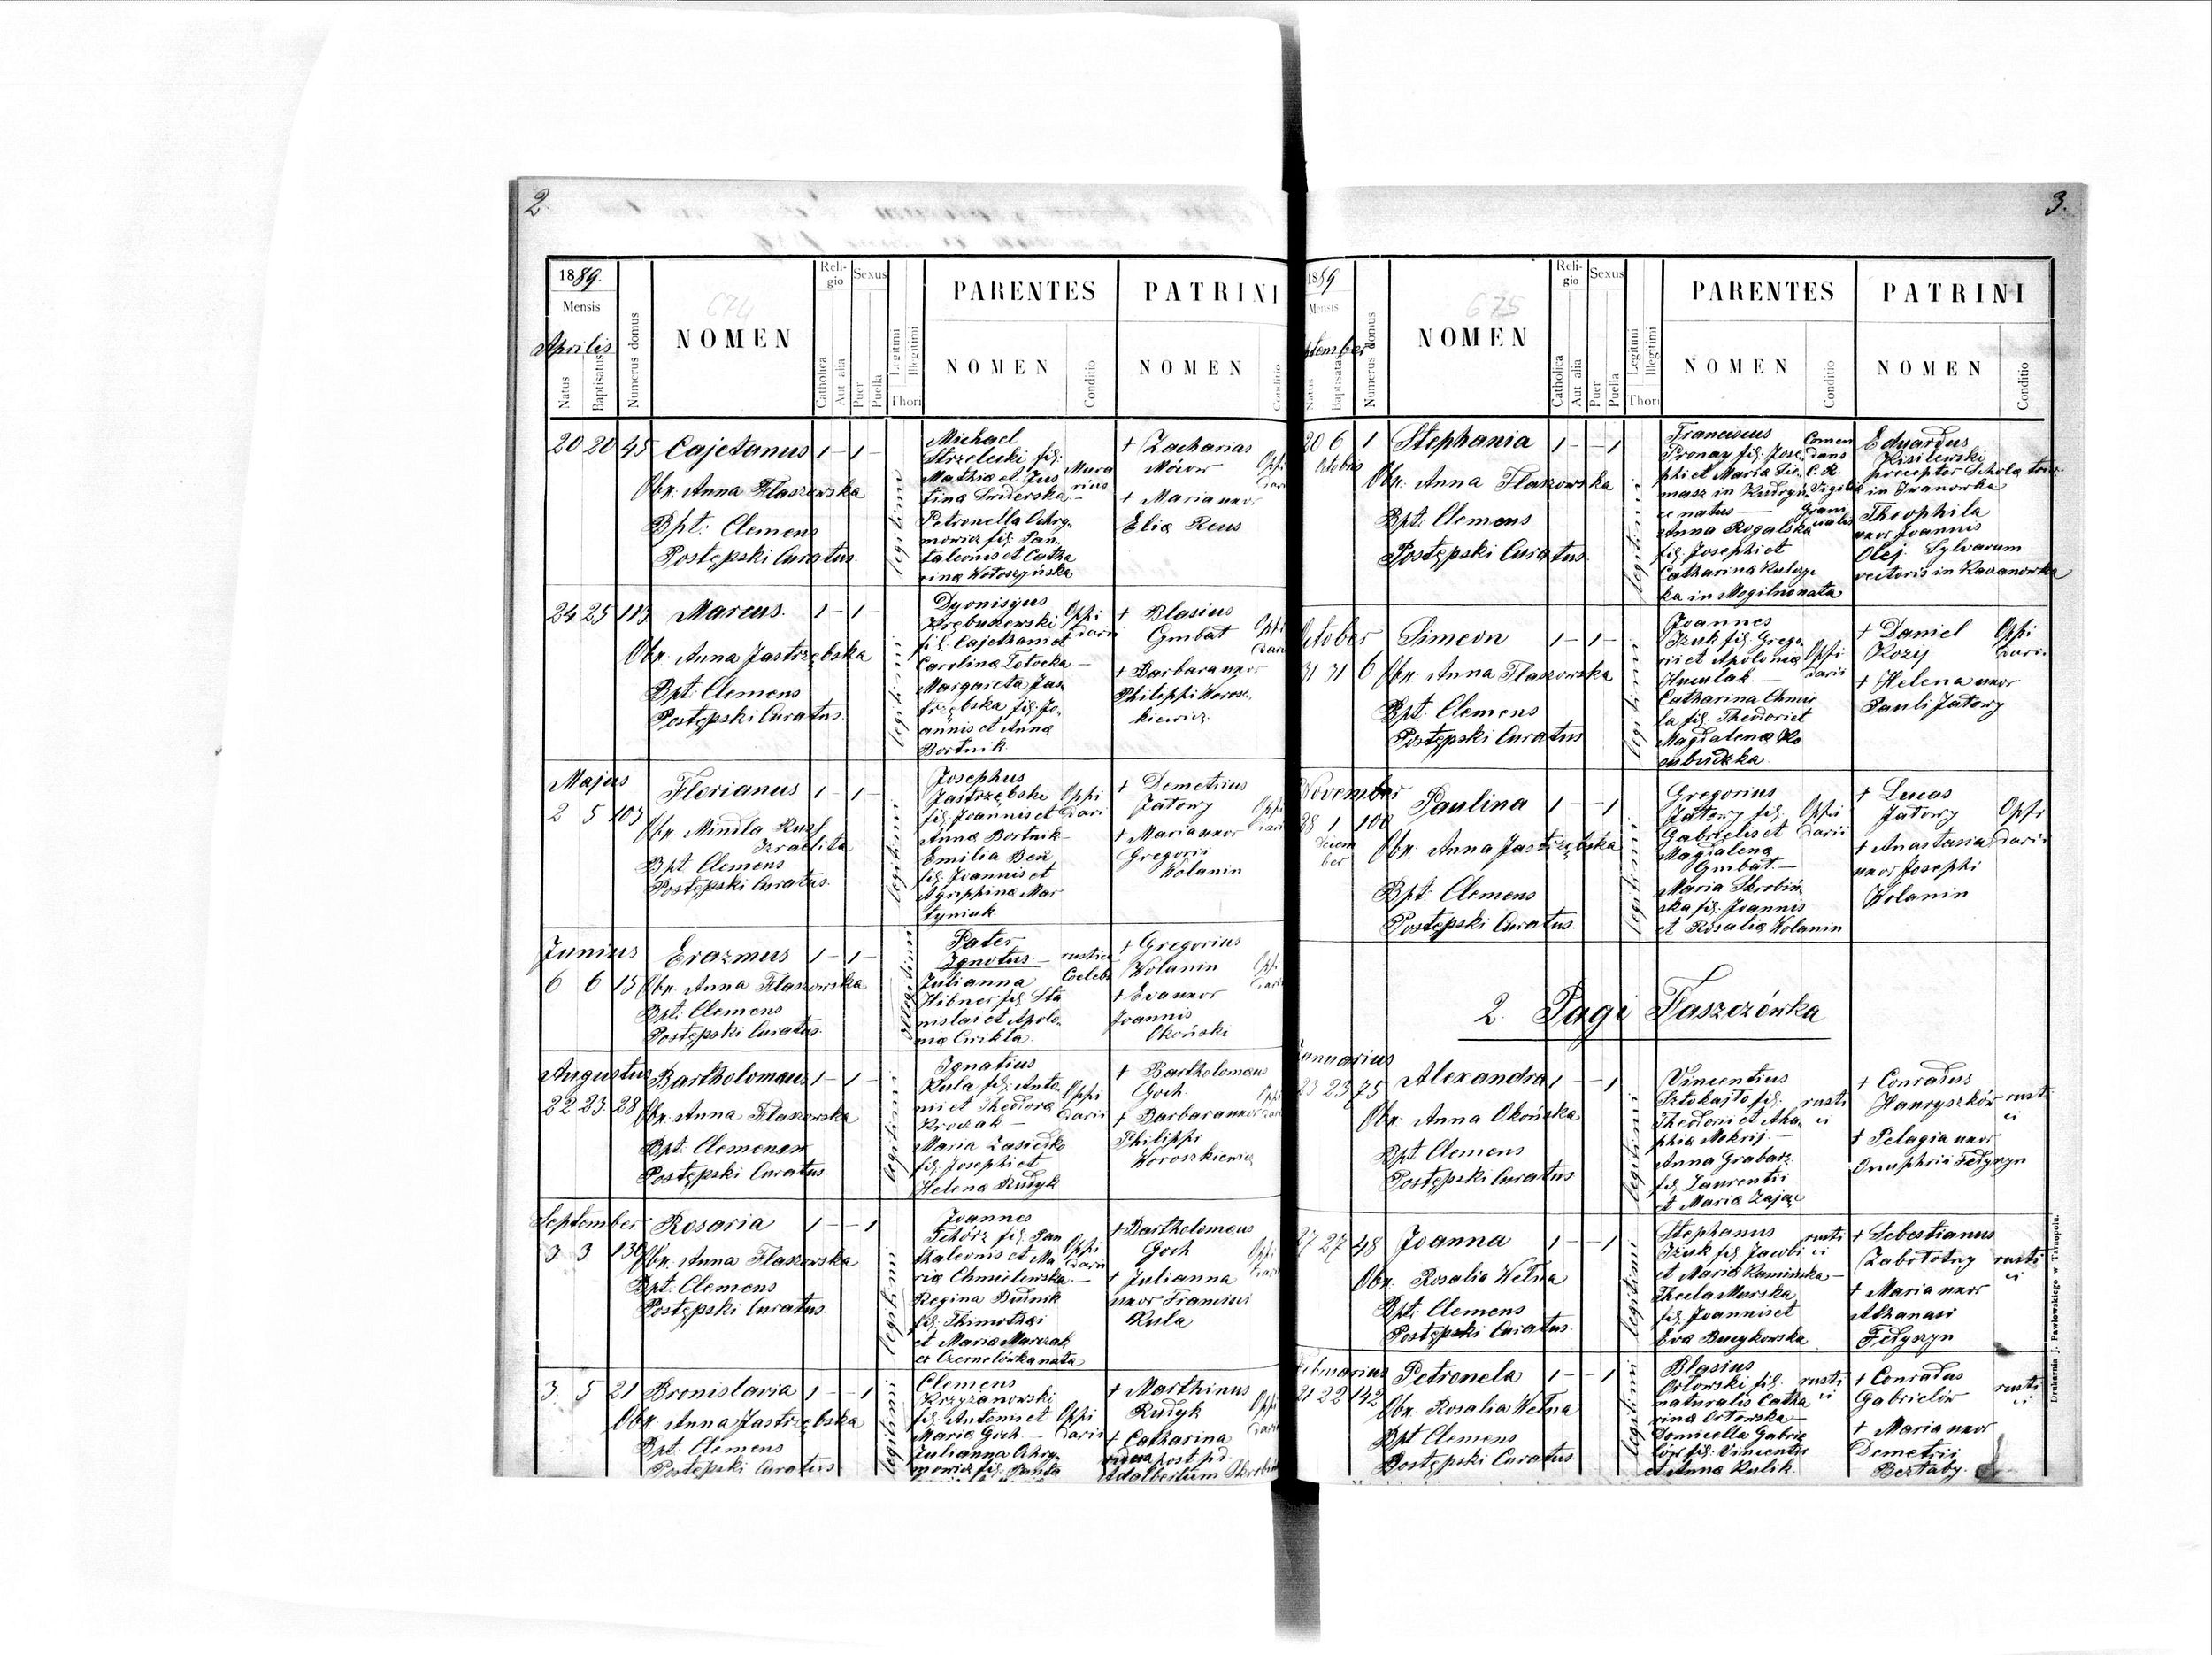 2.
1889.
Mensis
Aprilis
Natus
Baptisatus
Numerus domus
674
NOMEN
Religio
Catholica
Aut alia
Sexus
Puer
Puella
Legitimi
Illegitimi
Thori
PARENTES
NOMEN
Conditio
PATRINI
NOMEN
Conditio
20 20 45 Cajetanus 1 - 1 -
Obs. Anna Flaszowska
Bpt: Clemens
Postępski Curatus.
legitimi
Michael
Strzelecki fil:
Mathiæ et Jus
tina Świderska
Petronella Ochry-
mowicz fil: Pan-
taleonis et Catha
rina Wołoszyńska
Mura
rius
+ Zacharias
+ Maria uxor
Eliæ Reus
24 25 113 Marcus. 1 - 1 -
Obs. Anna Jastrzębska
Bpt: Clemens
Postępski Curatus.
legitimi
Dyonisyus
fil: Cajethani et
Carolina
Margareta Jas
trzębska fil: Jo-
annis et Anna
Bortnik.
Oppi
darii
+ Blasius
Gmbat
+ Barbara uxor
Philippi Worosz-
kiewicz
Majus
2 5 103 Florianus 1 - 1 -
Izraelita
Bpt. Clemens
Postępski Curatus.
legitimi
Josephus
Jastrzębski
fil: Joannis et
Anna Bortnik
Emilia
fil: Joannis et
Agrippina Mar
tyniuk.
Oppi
dari
+ Demetrius
Jatowy
+ Maria uxor
Gregorii
Wolanin
Junius
6 6 15 Erazmus 1 - 1 -
Obs. Anna Flaszowska
Bpt. Clemens
Postępski Curatus.
illegitimi
Pater
Ignotus
Julianna
Hibner fil: Sta
nislai et Apolo-
nia Cwikła.
rustica
Coelebs
+ Gregorius
Wolanin
+ Eva uxor
Joannis
Okoński
Augustus
22 23 28 Bartholomæus 1 - 1 -
Obs. Anna Flaszowska
Postępski Curatus.
legitimi
Ignatius
Kula fil: Anto-
nii et Theodora
Maria
fil: Josephi et
Helena Rudyk
Oppi
darii
+ Bartholomæus
Goch
+ Barbara uxor
Philippi
Woroszkiewicz
September
3 3 130 Rosaria 1 - - 1
Obs. Anna Flaszowska
Bpt: Clemens
Postępski Curatus.
legitimi
Joannes
Tchórz fil: Pan
thaleonis et Ma
ria Chmielewska
Regina Budnik
fil: Thimothæi
et Maria Marczak
ex Czernelówka nata
Oppi
darii
+ Bartholomæus
Goch
+ Julianna
uxor Francisci
Kula
3. 5 21 Bronislavia 1 - - 1
Obs. Anna Jastrzębska
Bpt: Clemens
Postępski Curatus
legitimi
Clemens
Krzyżanowski
fil: Antoni et
Maria Goch
Julianna Ochry-
mowicz fil: Panta
Oppi
darii
+ Marthinus
Rudyk
+ Catharina
vidua post pd
Adalbertum
3.
1889
Mensis
September
Natus
Baptisatus
Numerus domus
675
NOMEN
Religio
Catholica
Aut alia
Sexus
Puer
Puella
Legitimi
Illegitimi
Thori
PARENTES
NOMEN
Conditio
PATRINI
NOMEN
Conditio
20 6 1 Stephania 1 - - 1
Obs: Anna Flaszowska
Bpt: Clemens
Postępski Curatus
legitimi
Franciscus
Pronay fil: Jose-
phi et Maria
natus
Anna Rogalska
fil: Josephi et
Catharina
ka in Mogilno nata
Eduardus
Kisilewski
in Iwanowka
Theophila
uxor Joannis
Olej Sylvarum
rectoris in Kaczanowka
October
31 31 6 Simeon 1 - 1 -
Obs. Anna Flaszowska
Bpt: Clemens
Postępski Curatus
legitimi
Joannes
Iżuk fil: Grego-
rii et Apolonia
Catharina
la fil: Theodori et
Magdalena
Oppi
darii
+ Daniel
Kozij
+ Helena uxor
Pauli Jatowy
Oppi
darii
November
28 1 100 Paulina 1 - - 1
Decem
ber
Obs. Anna Jastrzębska
Bpt: Clemens
Postępski Curatus.
legitimi
Gregorius
Jatowy fil:
Gabrielis et
Magdalena
Gmbat
Maria Skrobiń
ska fil: Joannis
et Rosalia Wolanin
Oppi
darii
+ Lucas
Jatowy
+ Anastasia
uxor Josephi
Wolanin
Oppi
darii
2. Pagi Faszczówka
Januarius
23 23 75 Alexandra 1 - - 1
Obs. Anna Okońska
Bpt Clemens
Postępski Curatus
legitimi
Vincentius
Sztokajło fil:
Theodori et Aha-
phia Mokrij
Anna Grabarz
fil: Laurentii
et Maria Zając
rusti
ci
+ Conradus
Hawryszków
+ Pelagia uxor
Onuphrii Fedyszyn
rusti
ci
27 27 48 Joanna 1 - - 1
Obs. Rosalia Wełna
Bpt: Clemens
Postępski Curatus.
legitimi
Stephanus
Iżuk fil: Jacobi
et Maria Kamińska
Thecla Murska
fil: Joannis et
Eva Buczkowska
rusti
ci
+ Sebestianus
Zabołotny
+ Maria uxor
Athanasi
Fedyszyn
rusti
ci
Februarius
21 22 142 Petronela 1 - - 1
Obs. Rosalia Wełna
Bpt Clemens
Postępski Curatus
legitimi
Blasius
Orłowski fil:
naturalis Catha
rina Orłowska
Domicella Gabrie
lów fil: Vincentii
et Anna Kulik.
rusti
ci
+ Conradus
Gabrielów
+ Maria uxor
Demetrii
Beztaby.
rusti
ci
Drukarnia J. Pawłowskiego w Tarnopolu.